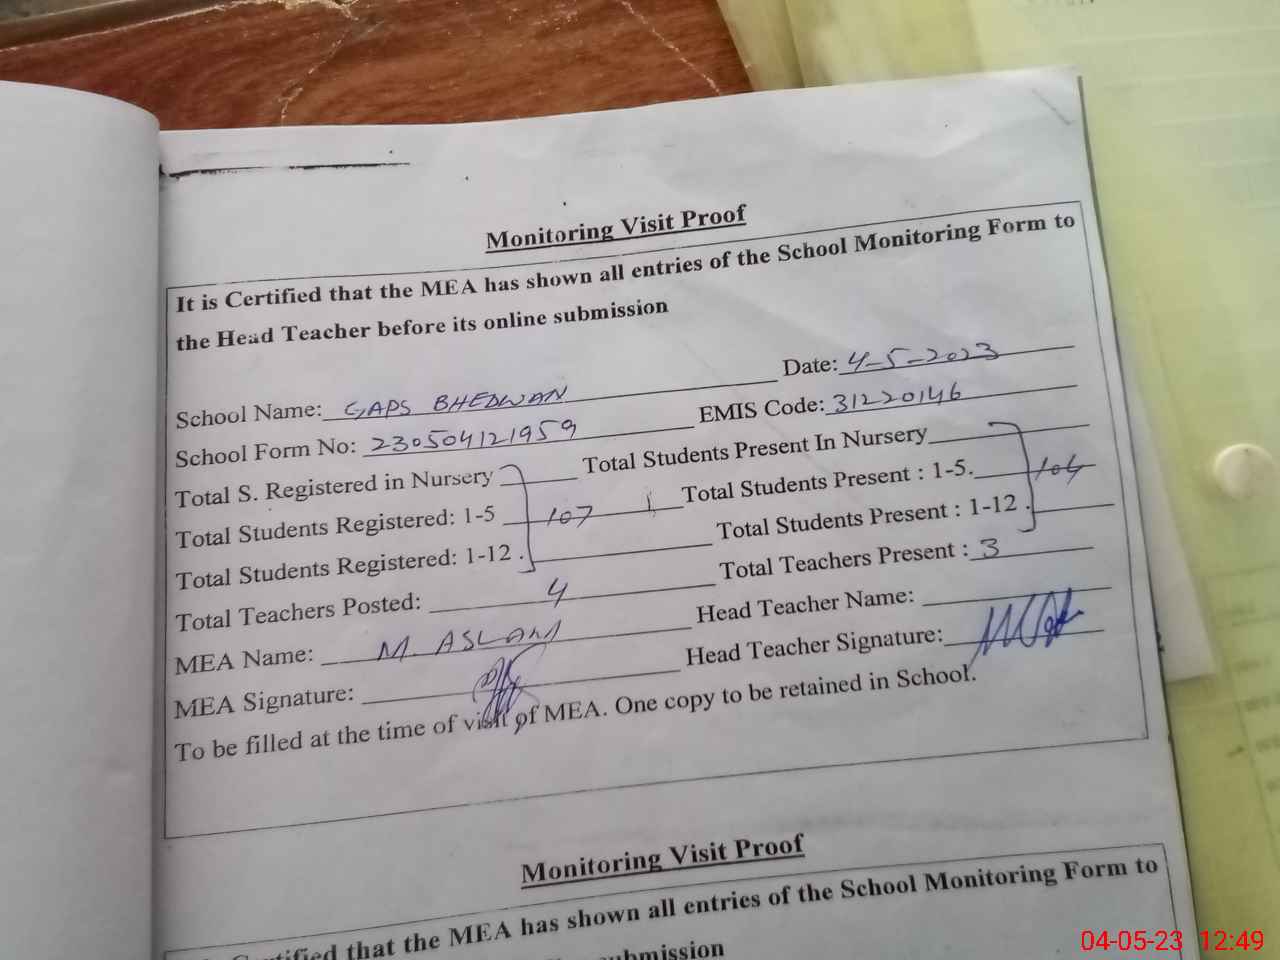 Monitoring Visit Proof
It is Certified that the MEA has shown all entries of the School Monitoring Form to
the Head Teacher before its online submission
School Name: GAPS BHEDWAN Date: 4-5-2023
School Form No: 230504121959 EMIS Code: 31220146
Total S. Registered in Nursery Total Students Present In Nursery
Total Students Registered: 1-5 107 Total Students Present : 1-5. 104
Total Students Registered: 1-12 . Total Students Present : 1-12 .
Total Teachers Posted: 4 Total Teachers Present : 3
MEA Name: M. ASLAM Head Teacher Name:
MEA Signature: Head Teacher Signature:
To be filled at the time of visit of MEA. One copy to be retained in School.
Monitoring Visit Proof
Certified that the MEA has shown all entries of the School Monitoring Form to
submission
04-05-23 12:49